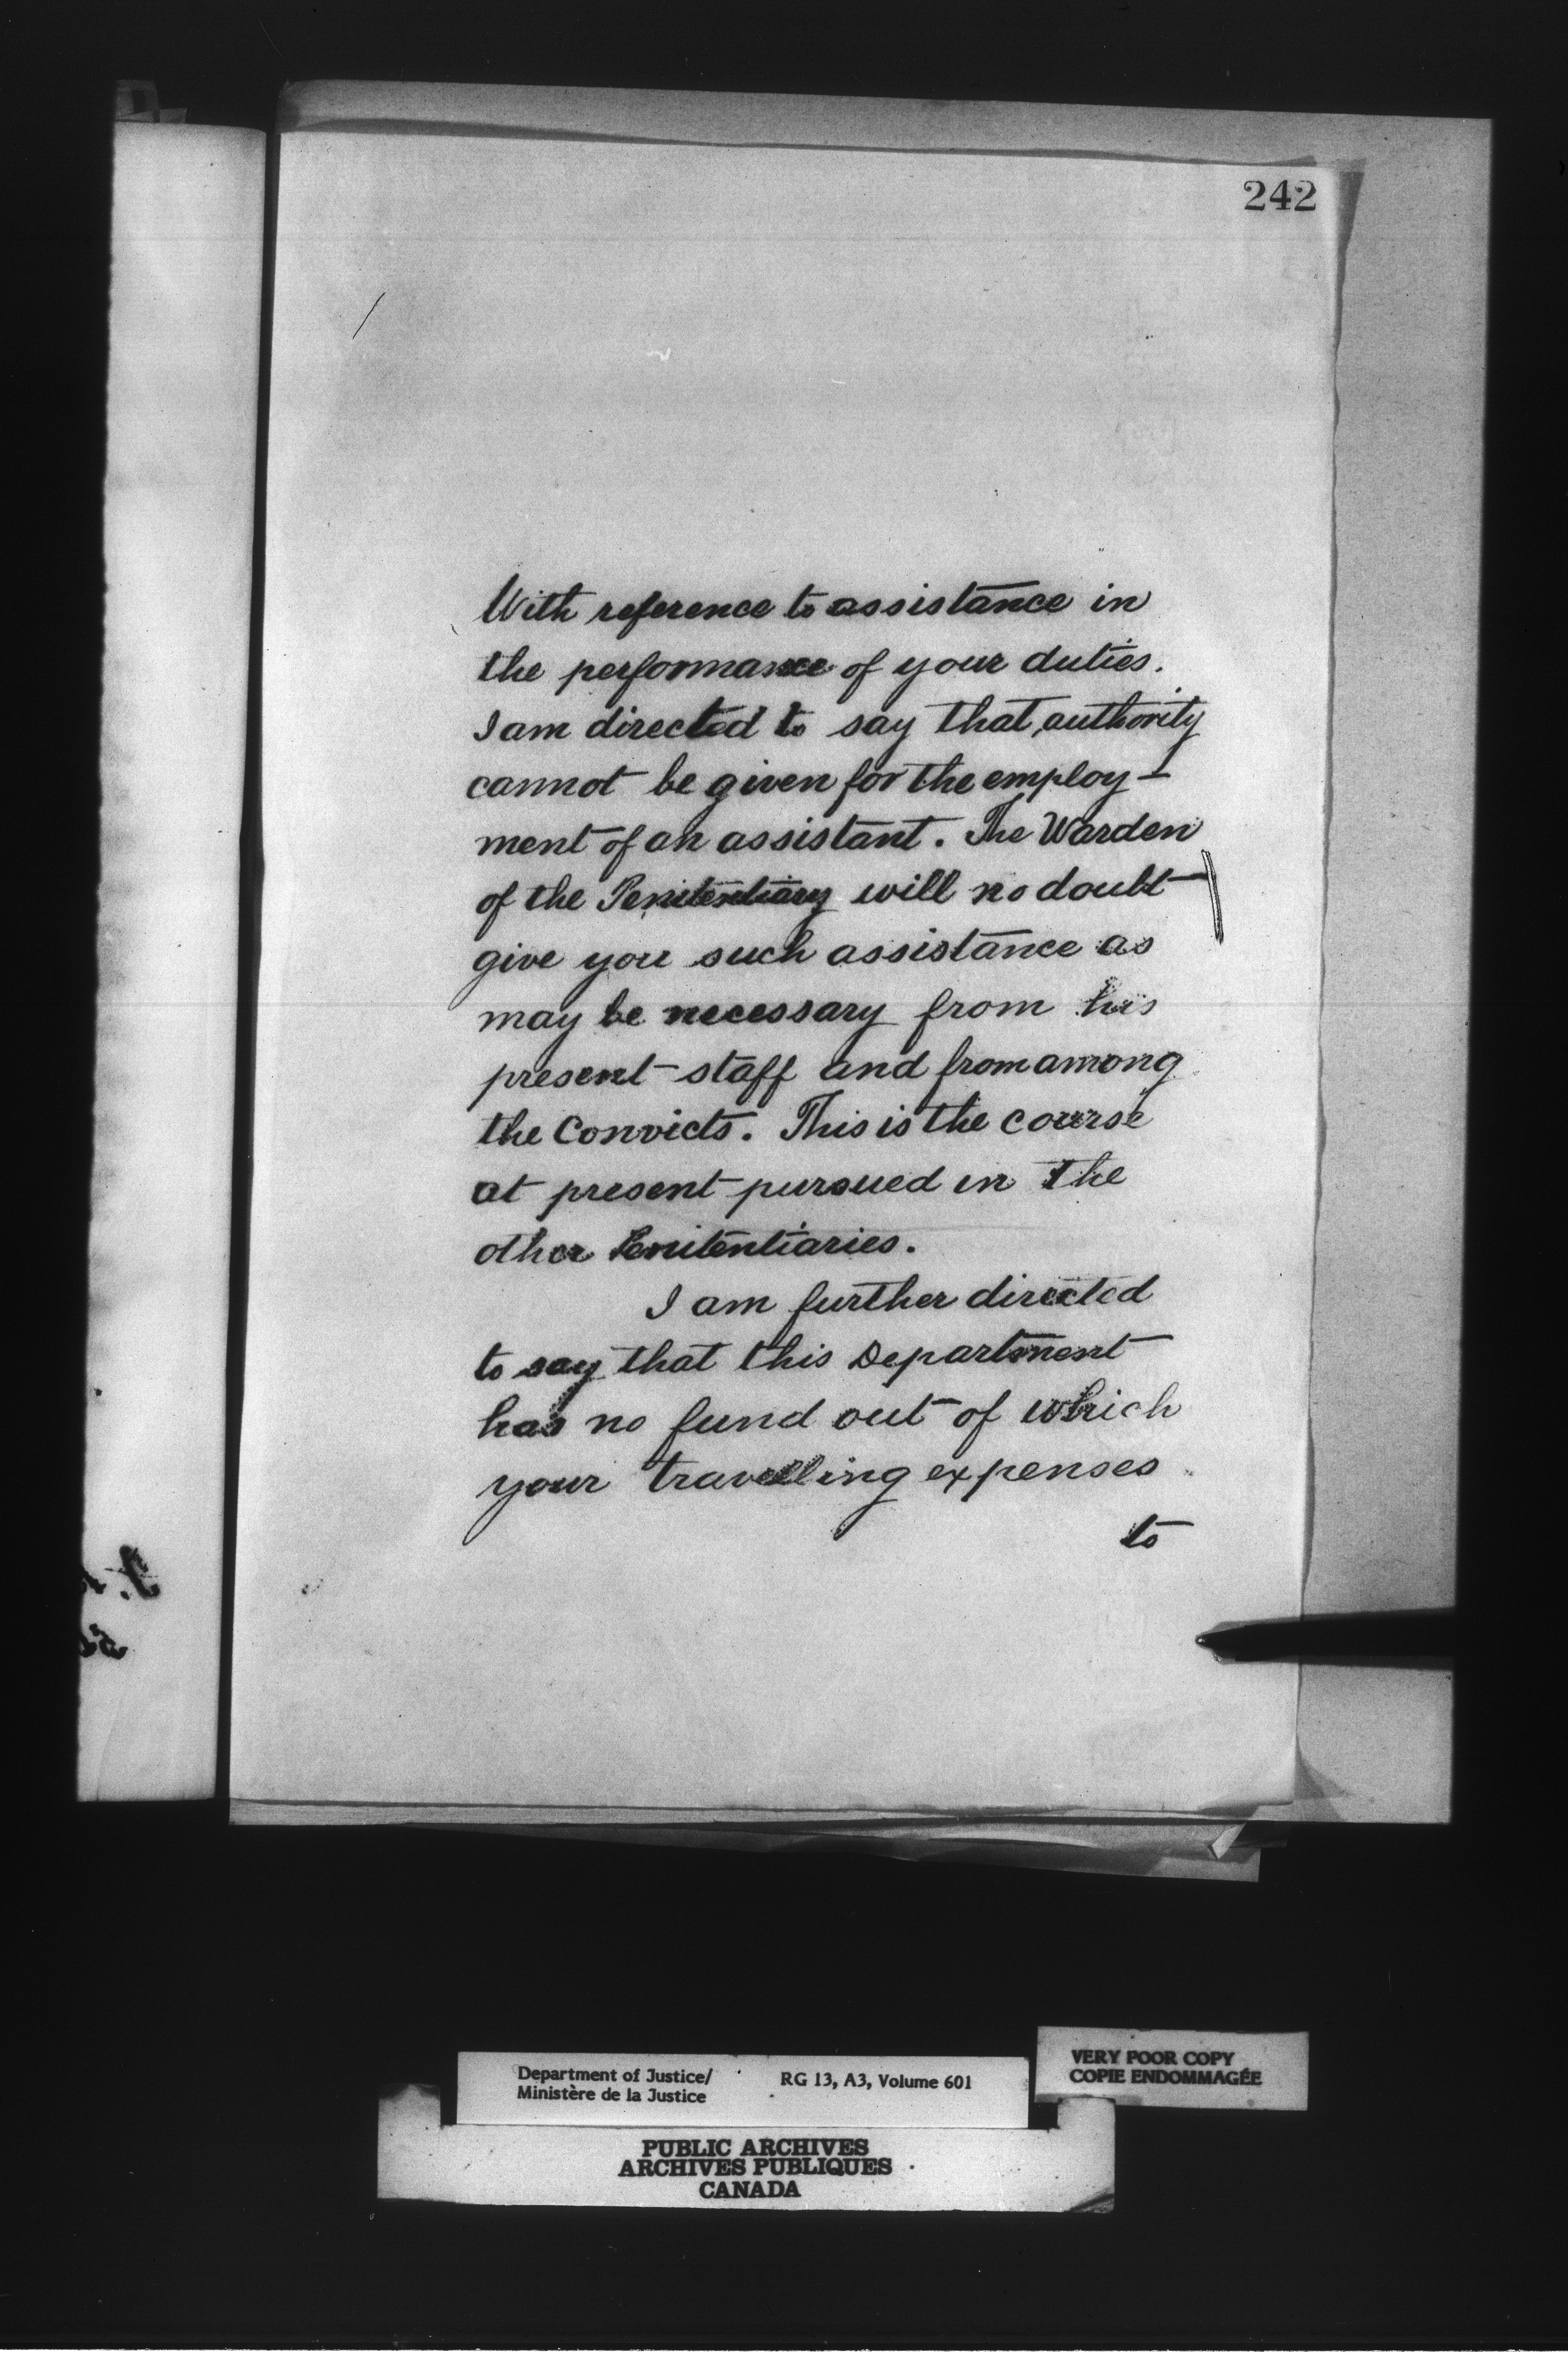 242
With reference to assistance in
the performance of your duties.
I am directed to say that authority
cannot be given for the employ-
ment of an assistant. The Warden
of the Penitentiary will no doubt
give you such assistance as
may be necessary from his
present staff and from among
the Convicts. This is the course
at present pursued in the
other Penitentiaries.
I am further directed
to say that this Department
has no fund out of which
your travelling expenses
to
Department of Justice/
Ministère de la Justice
RG 13, A3, Volume 601
VERY POOR COPY
COPIE ENDOMMAGÉE
PUBLIC ARCHIVES
ARCHIVES PUBLIQUES
CANADA